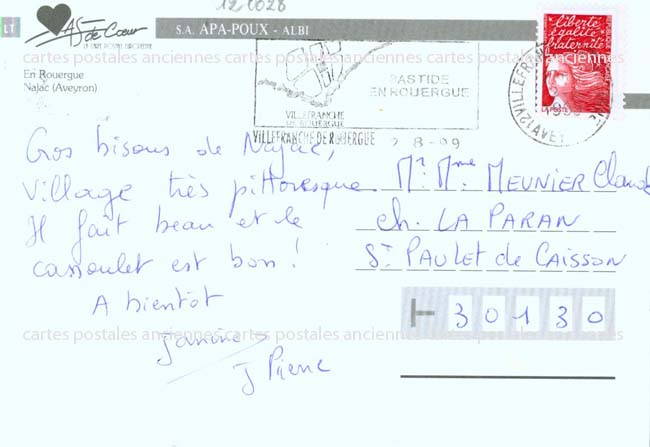 12 0028
LT
AS de Cœur
S.A. APA-POUX - ALBI
En Rouergue
Najac (Aveyron)
liberté
égalité
fraternité
LA POSTE
BASTIDE
EN ROUERGUE
VILLEFRANCHE
DE ROUERGUE
VILLEFRANCHE DE ROUERGUE
2-8-99
12 VILLEFR
AVEY
cartes postales anciennes cartes postales anciennes cartes postales anciennes
Gros bisous de Najac,
Village très pittoresque
Il fait beau et le
cassoulet est bon !
A bientôt
Janine
J Pierre
Mr. Mme. MEUNIER Claude
ch. LA PARAN
St PAULET de CAISSON
30130
cartes postales anciennes cartes postales anciennes cartes postales anciennes